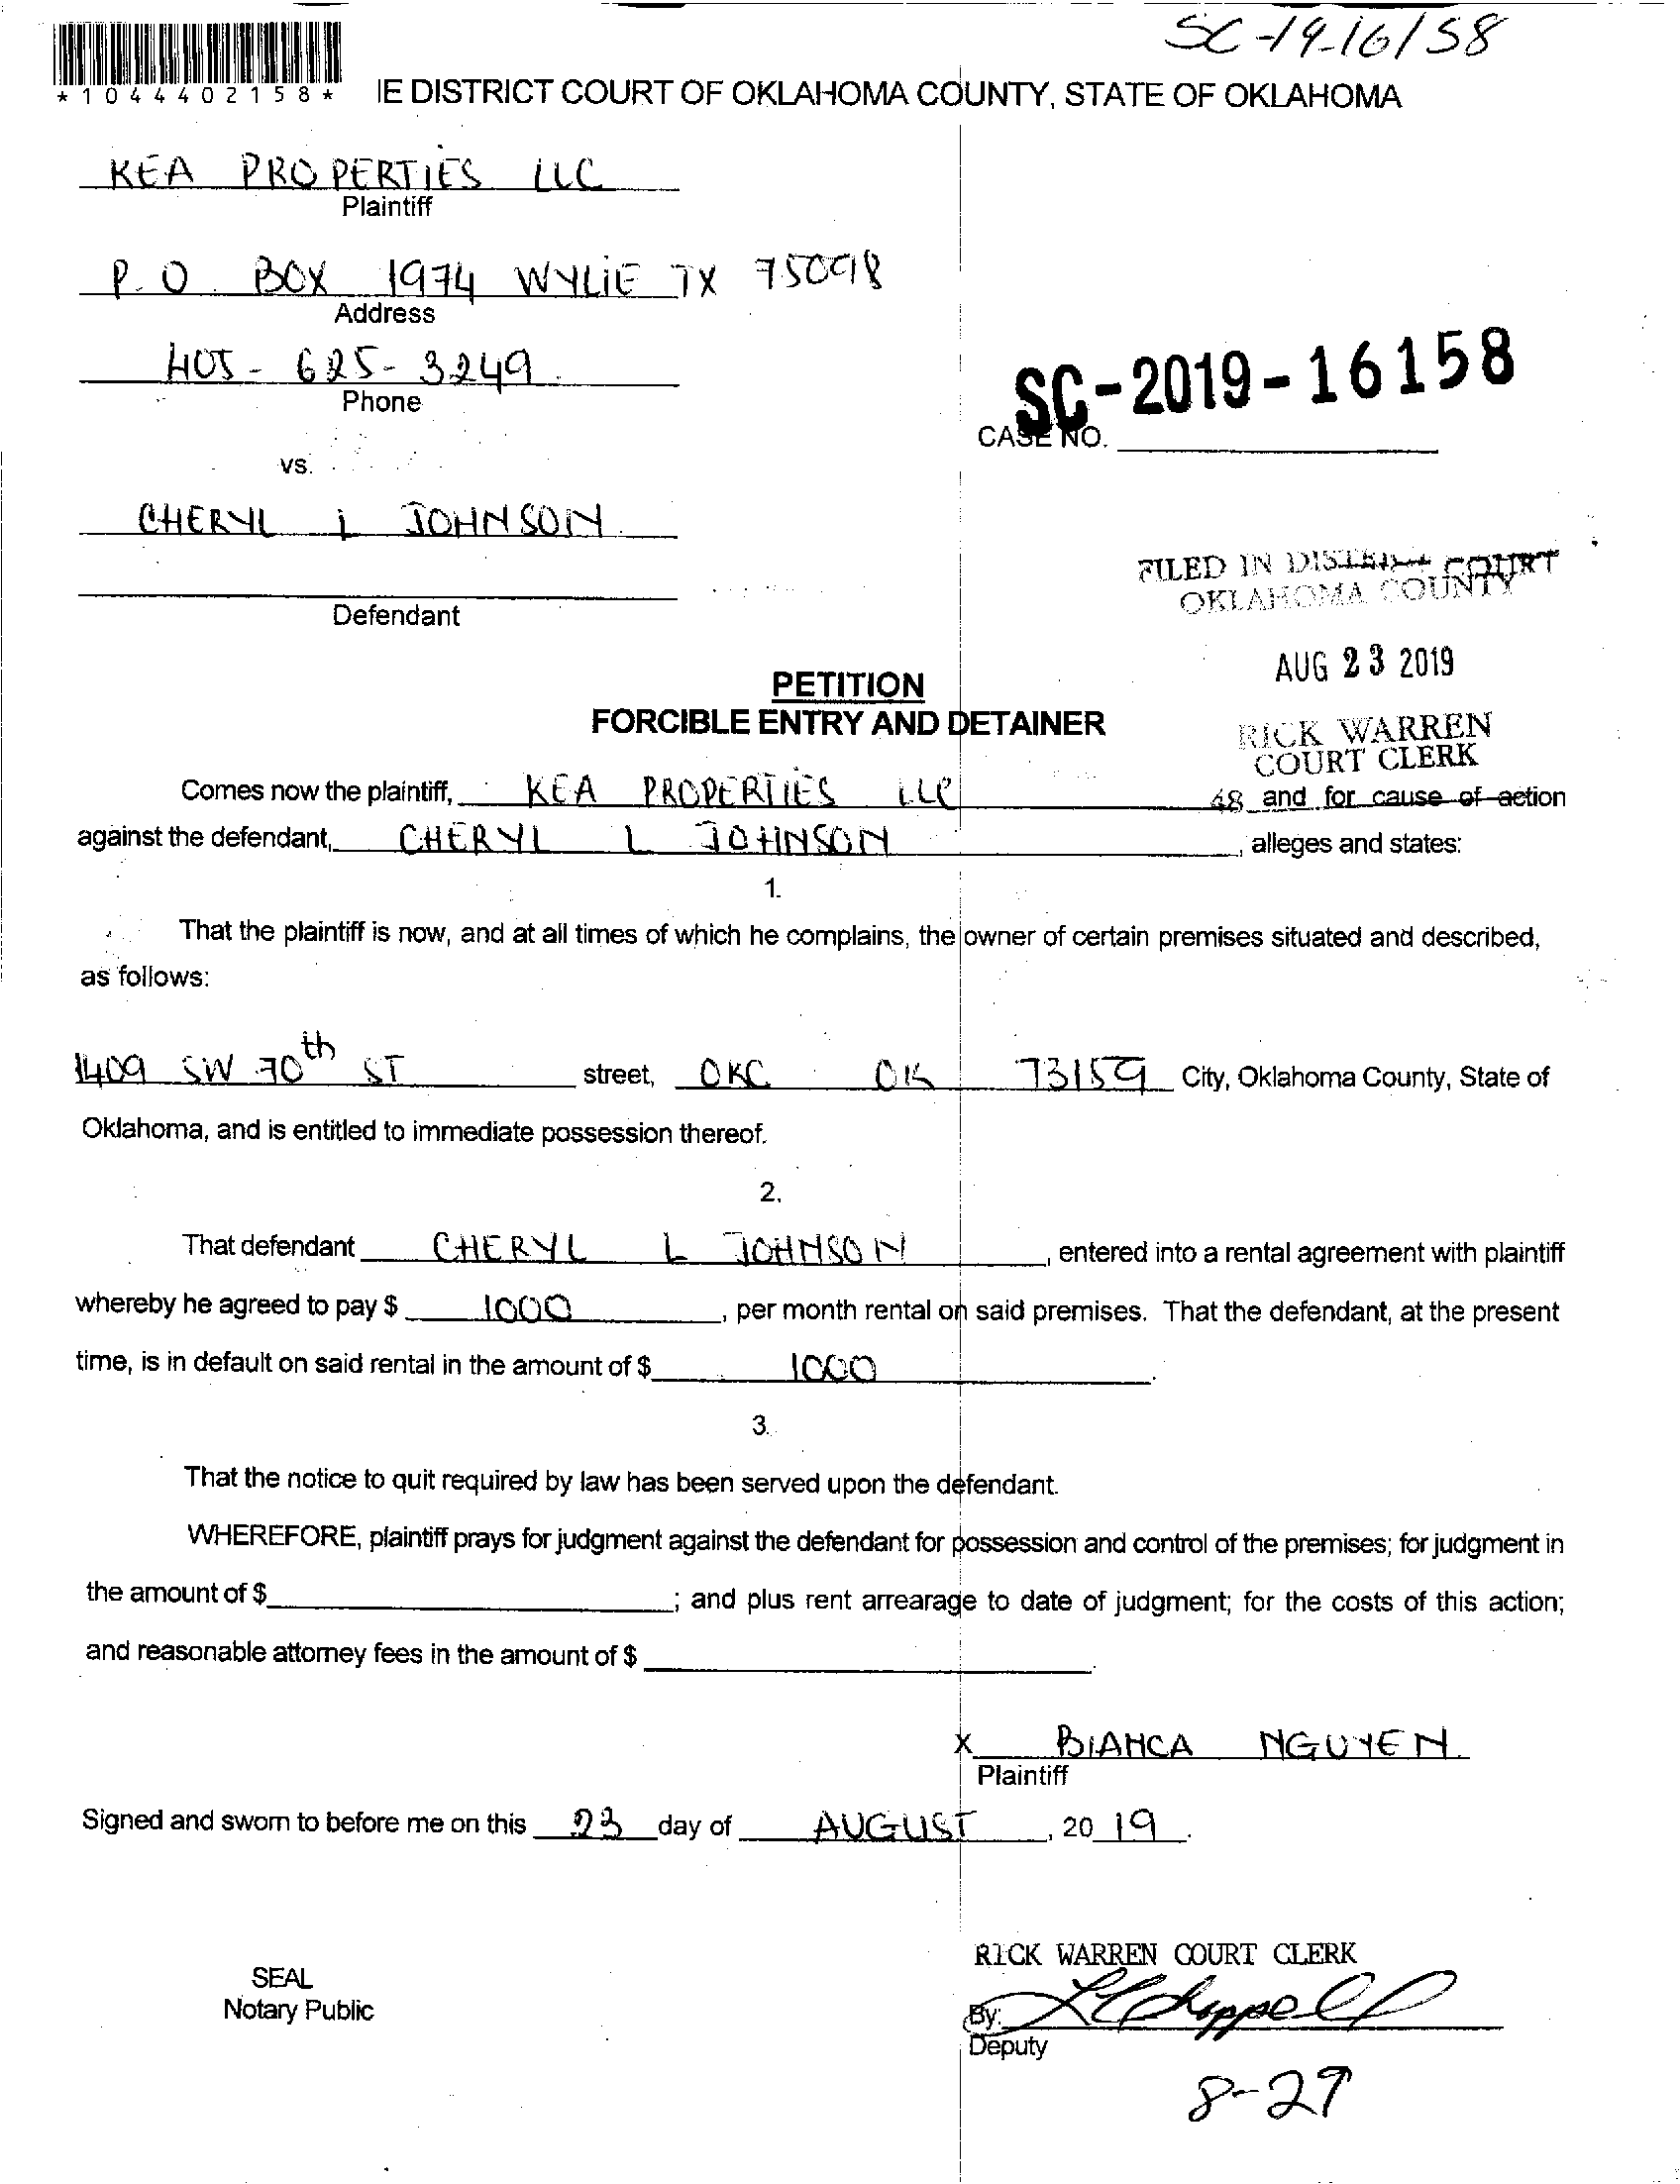 SC-19-16158
*1044402158*
IE DISTRICT COURT OF OKLAHOMA COUNTY, STATE OF OKLAHOMA
KEA PROPERTIES LLC
Plaintiff
P.O. BOX 1974 WYLIE TX 75098
Address
405-625-3249
Phone
SC-2019-16158
CASE NO.
vs.
CHERYL L JOHNSON
Defendant
FILED IN DISTRICT COURT
OKLAHOMA COUNTY
AUG 23 2019
RICK WARREN
COURT CLERK
48
PETITION
FORCIBLE ENTRY AND DETAINER
Comes now the plaintiff, KEA PROPERTIES LLC and for cause of action
against the defendant, CHERYL L JOHNSON, alleges and states:
1.
That the plaintiff is now, and at all times of which he complains, the owner of certain premises situated and described,
as follows:
1409 SW 70th ST street, OKC OK 73159 City, Oklahoma County, State of
Oklahoma, and is entitled to immediate possession thereof.
2.
That defendant CHERYL L JOHNSON, entered into a rental agreement with plaintiff
whereby he agreed to pay $ 1000, per month rental on said premises. That the defendant, at the present
time, is in default on said rental in the amount of $ 1000.
3.
That the notice to quit required by law has been served upon the defendant.
WHEREFORE, plaintiff prays for judgment against the defendant for possession and control of the premises; for judgment in
the amount of $; and plus rent arrearage to date of judgment; for the costs of this action;
and reasonable attorney fees in the amount of $.
X BIANCA NGUYEN
Plaintiff
Signed and sworn to before me on this 23 day of AUGUST, 20 19.
RICK WARREN COURT CLERK
SEAL
Notary Public
By:
Deputy
8-29